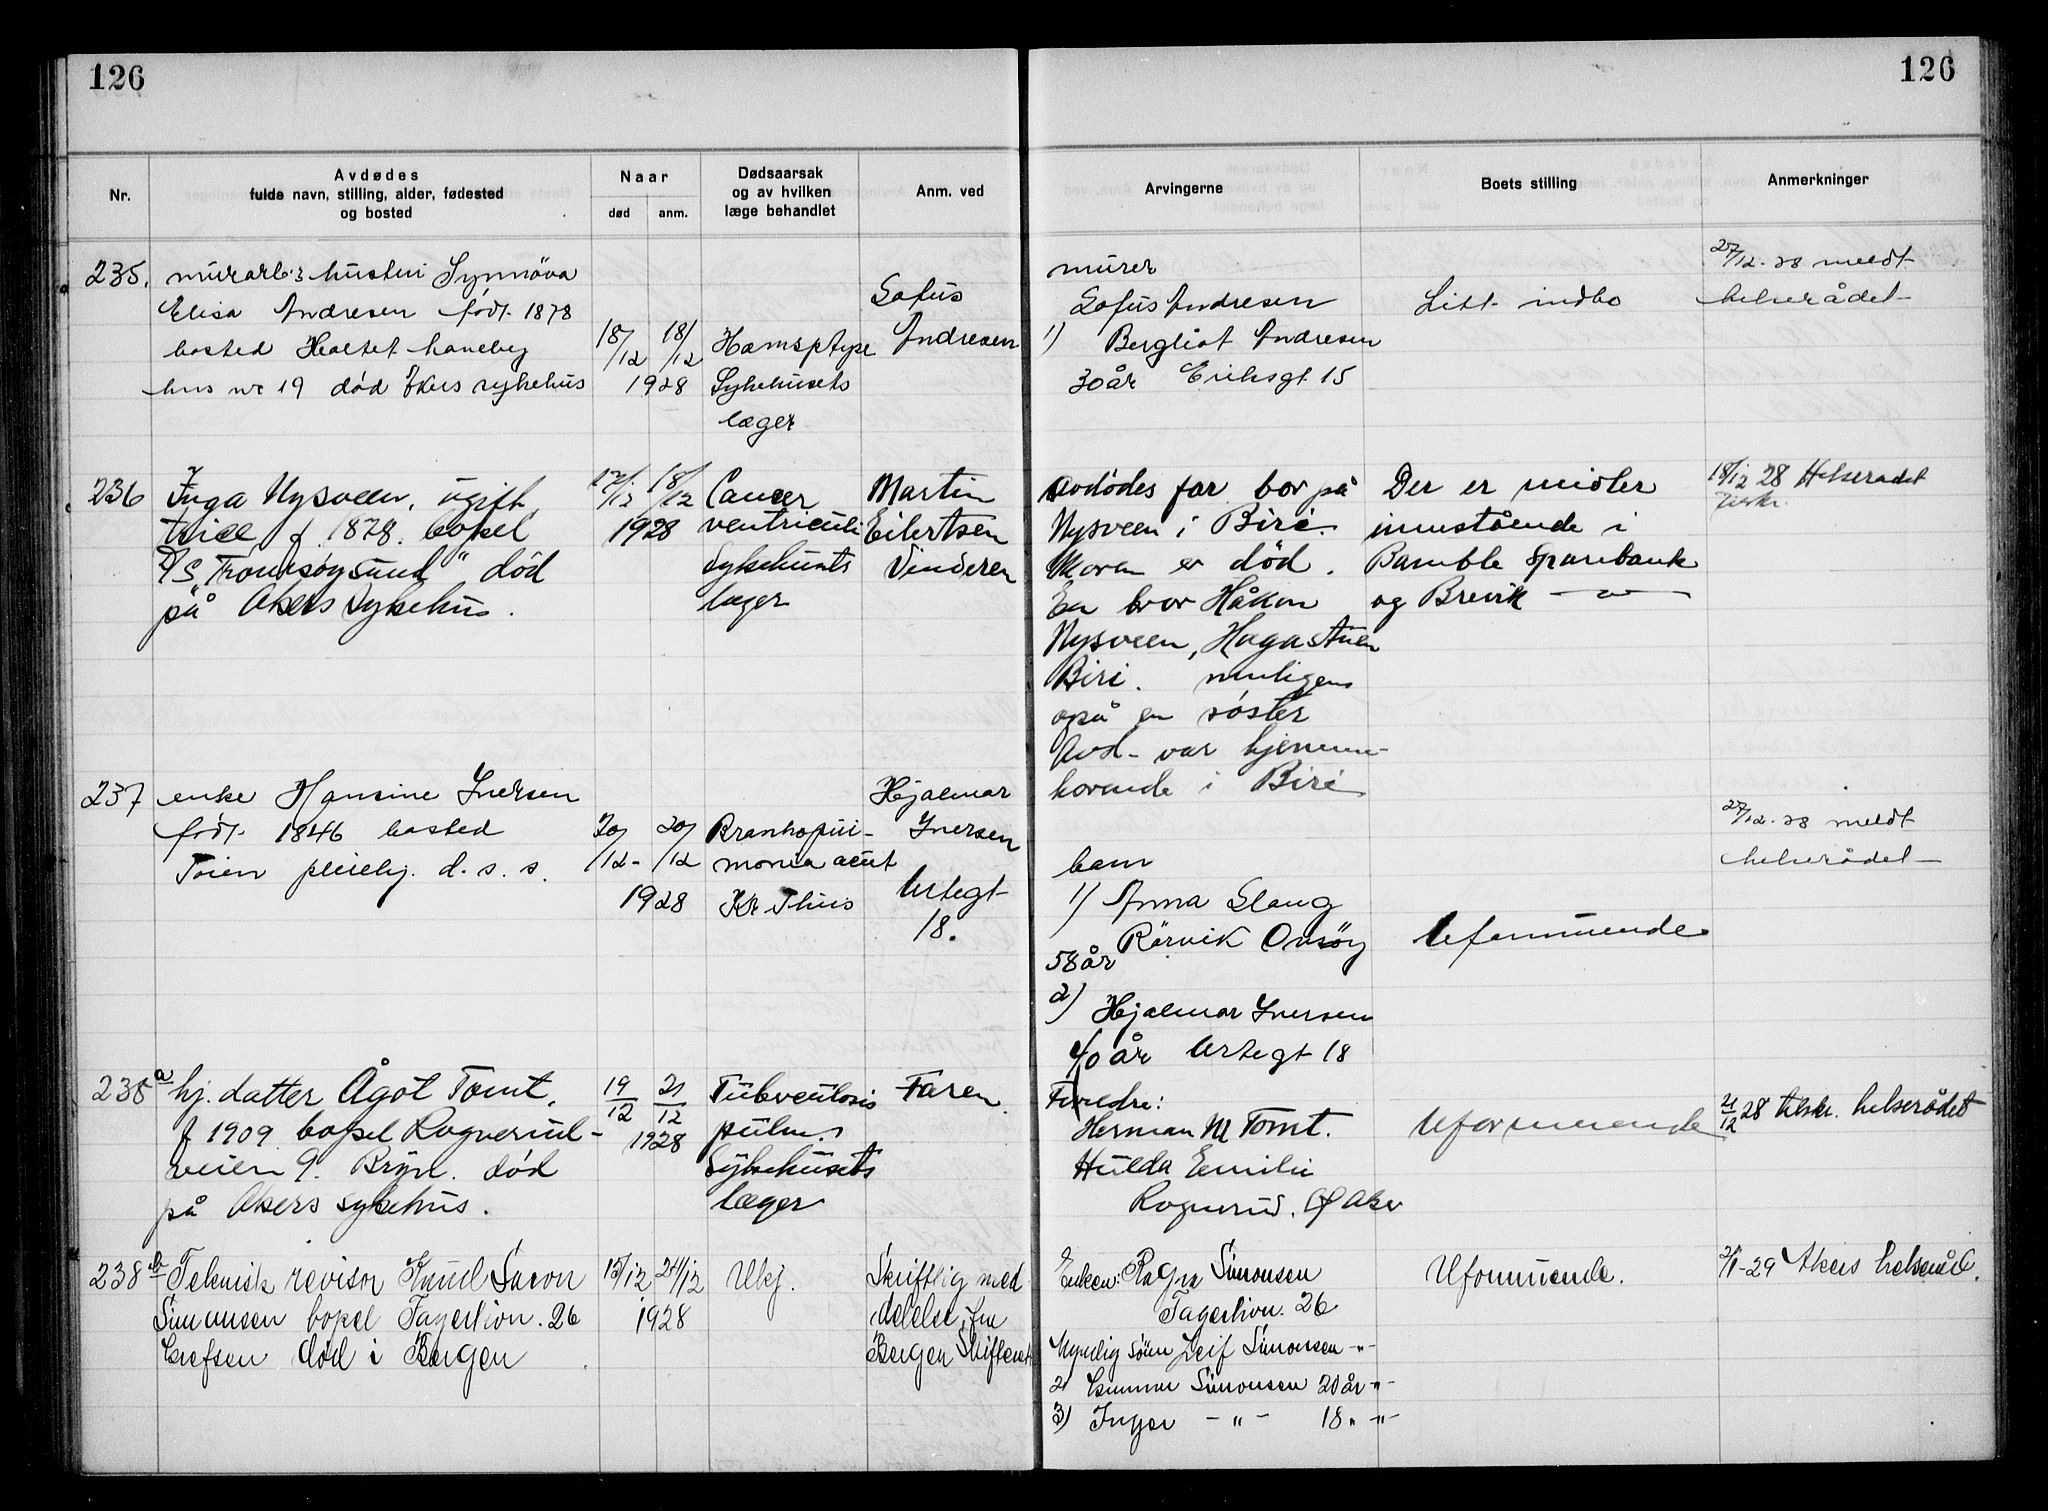 126
126
Nr.
Avdødes
fulde navn, stilling, alder, fødested
og bosted
Naar
død
anm.
Dødsaarsak
og av hvilken
læge behandlet
Anm. ved
Arvingerne
Boets stilling
Anmerkninger
235.
murarb.s hustru Synnöva
Elisa Andresen født 1878
bosted
hus nr 19 død Akers sykehus
18/12 18/12
1928
Sykehusets
læger
Sofus
Andresen
murer
Sofus Andresen
1) Bergliot Andresen
30 år Eriksgt. 15
Litt indbo
27/12-28 meldt
helserådet
236
Inga Nysveen, ugift
f. 1878. bopel
D/S „Tromsøysund“ død
på Akers sykehus.
17/12 18/12
1928
Cancer
ventriculi
Sykehusets
læger
Martin
Eilertsen
Vinderen
Avdødes far bor på
Nysveen i Biri.
Moren er død.
En bror Håkon
Nysveen, Hagastuen
Biri. muligens
også en søster
Avd. var hjemme-
hørende i Biri
Der er midler
innestående i
Bamble Sparebank
og Brevik — " —
18/12 28 Helserådet
237
enke Hansine Iversen
født 1846 bosted
Töien pleiehj. d. s. s.
20/12- 20/12
1928
Bronkopnö-
monia acut
Hjalmar
Iversen
Urtegt
18.
barn
1) Anna Slang
Rörvik Onsöy
58 år
2)
Hjalmar Iversen
40 år Urtegt 18
Uformuende
27/12-28 meldt
helserådet
238 a
hj. datter Ågot Tomt.
f 1909 bopel Rognerud-
veien 9. Bryn. død
på Akers sykehus.
19/12 21/12
1928
Tuberculosis
pulm.
Sykehusets
læger
Faren
Foreldre:
Herman M Tomt.
Hulda Emilie
Rognerud. Ø Aker
Uformuende
21/12 28 tilskr. helserådet
238 b
Teknisk revisor Knud Saron
Simonsen bopel Fagerlivn. 26
Grefsen død i Bergen
15/12 24/12
1928
Ukj.
Skriftlig med
delelse fra
Bergen Skifteret
Enken: Ragna Simonsen
Fagerlivn. 26
Myndig sönn Leif Simonsen -"-
2) Gunnar Simonsen 20 år -"-
3) Inger - " - 18 " -"-
Uformuende.
2/1-29 Akers helseråd.